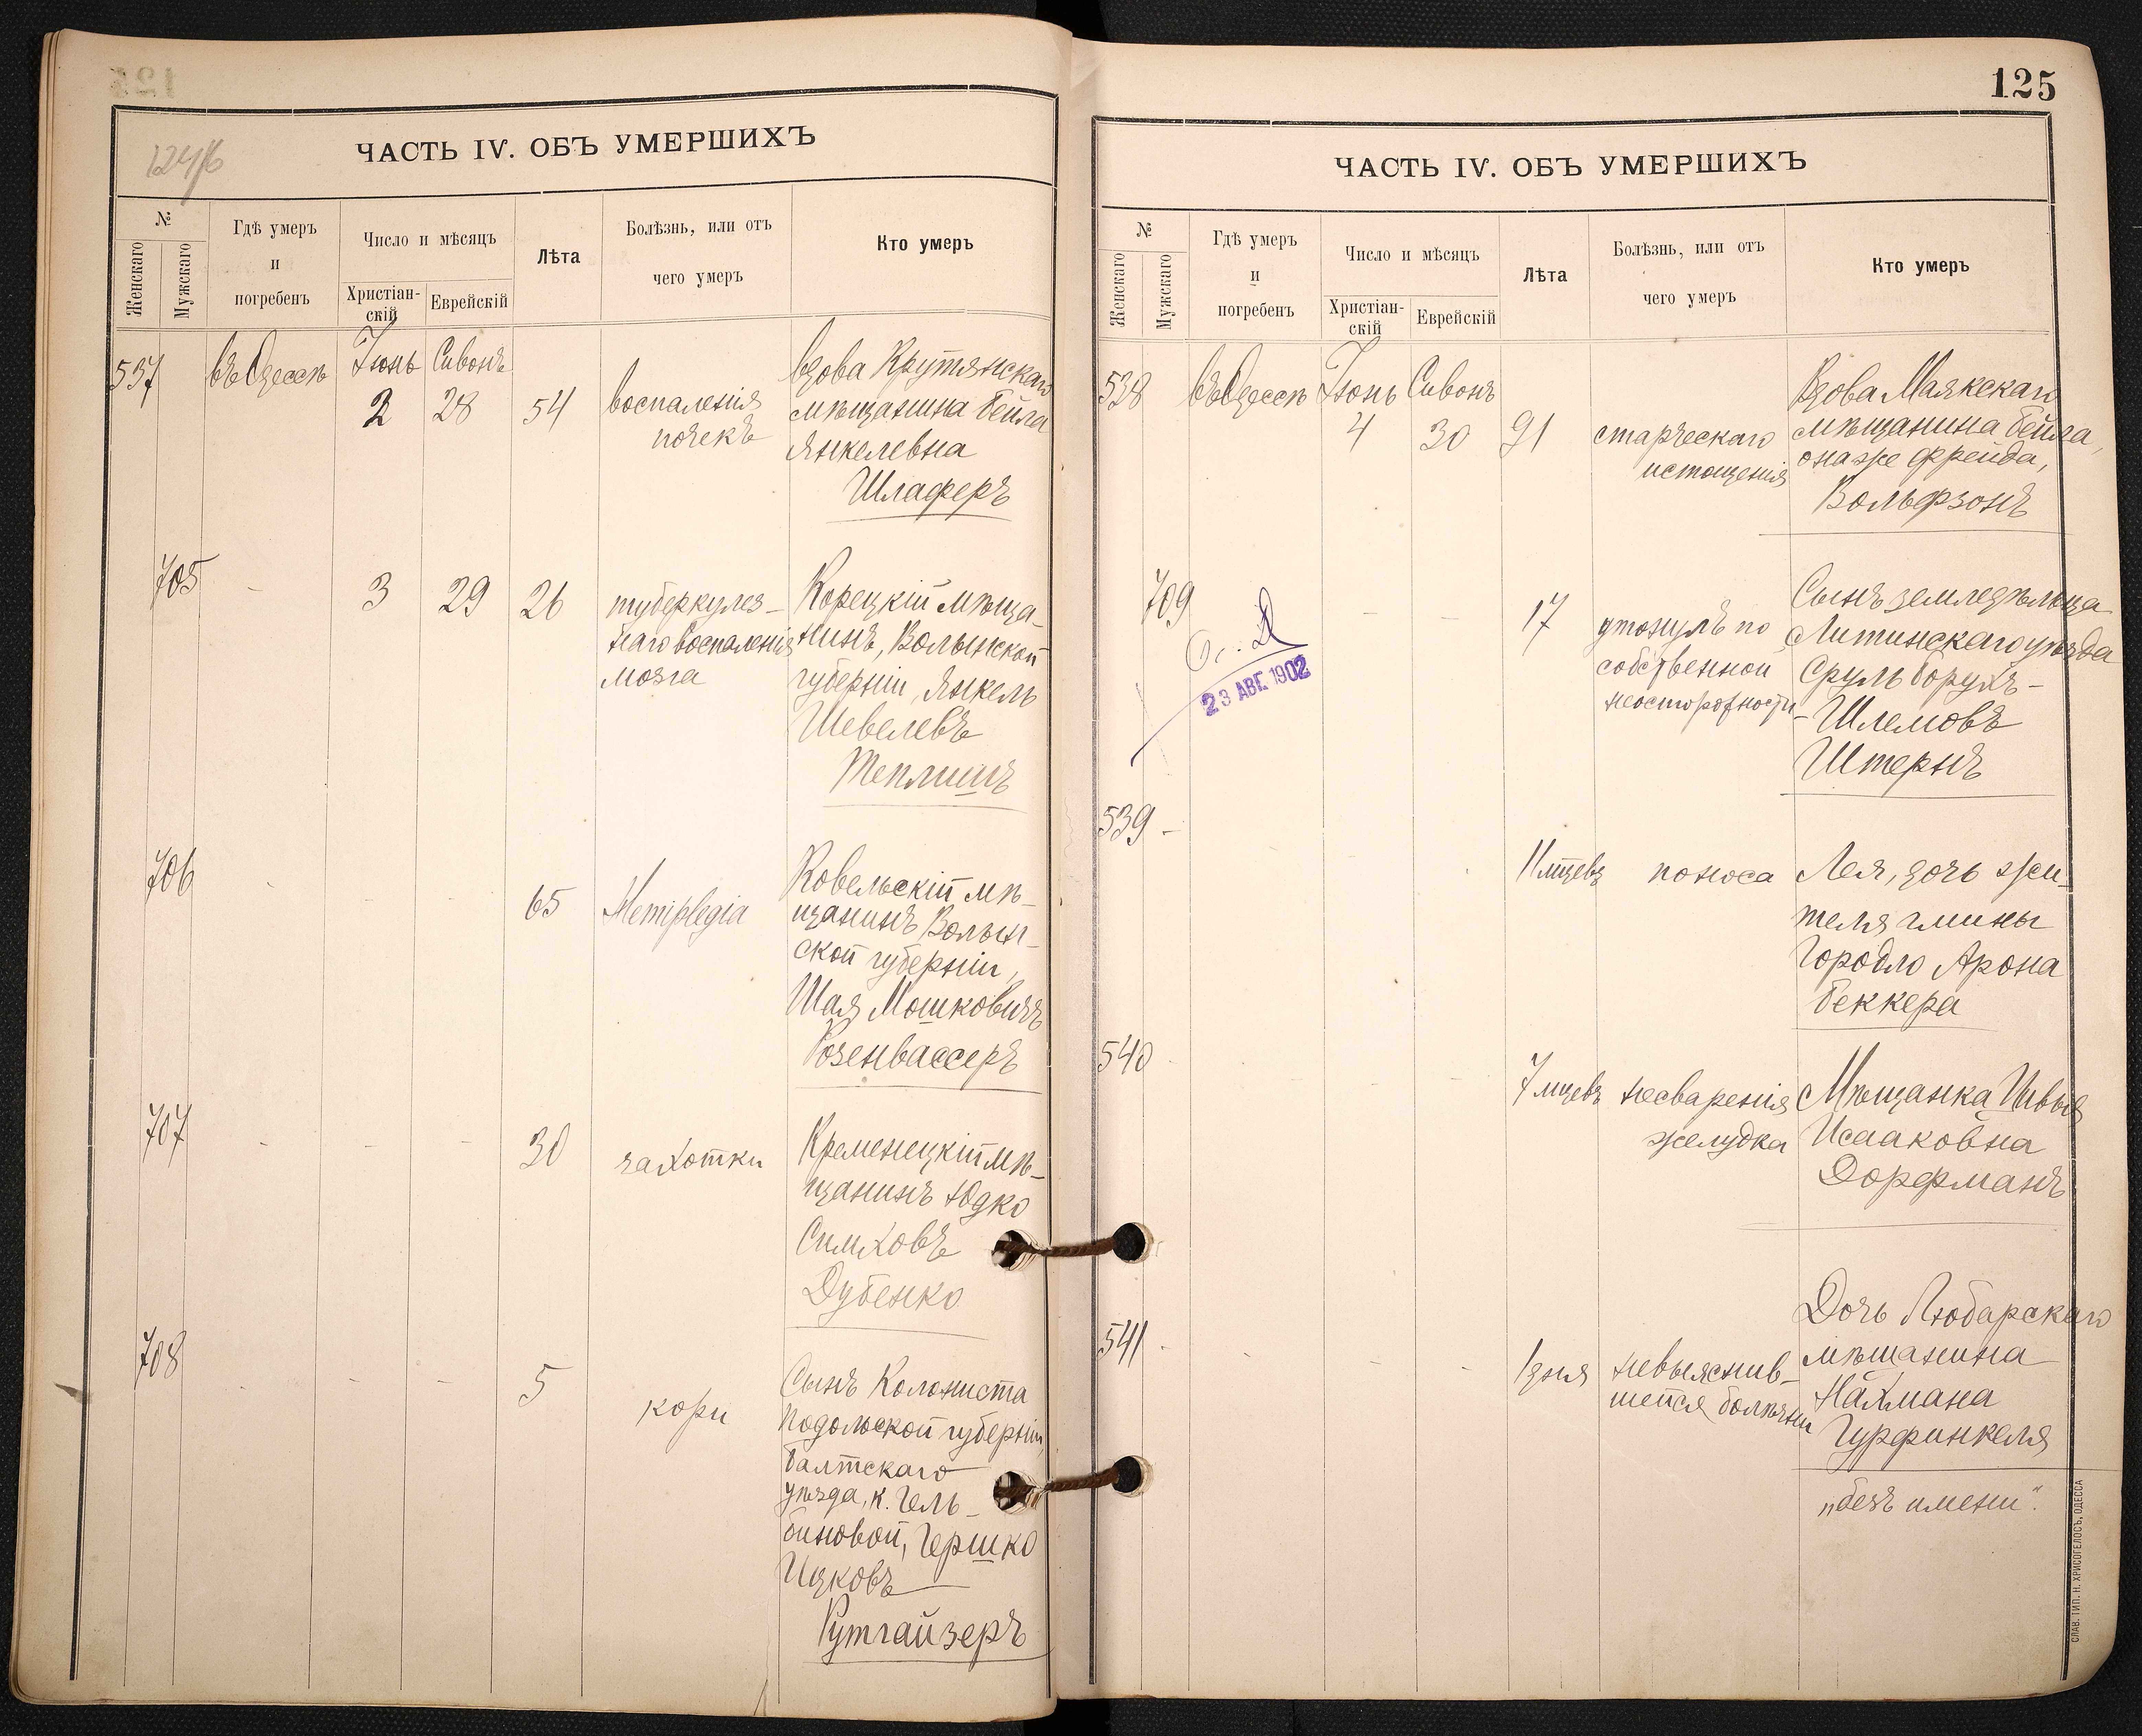 124/б
ЧАСТЬ IV. ОБЪ УМЕРШИХЪ
№
Женскаго
Мужскаго
Гдѣ умеръ
и
погребенъ
Число и мѣсяцъ
Христіан-
скій
Еврейскій
Лѣта
Болѣзнь, или отъ
чего умеръ
Кто умеръ
537
въ Одессѣ
Іюнь
2
Сивонъ
28
54
воспаленія
почекъ
вдова Крутянскаго
мѣщанина Бейла
Янкелевна
Шлаферъ
705
-
3
29
26
туберкулез-
наго воспаленія
мозга
Корецкій мѣща-
нинъ, Волынской
губерніи, Янкель
Шевелевъ
Теплишъ
706
-
-
-
65
Hemiplegia
Ковельскій мѣ-
щанинъ Волын-
ской губерніи,
Шая Мошковичъ
Розенвассеръ
707
-
-
-
30
чахотки
Кременецкій мѣ-
щанинъ Юдко
Симховъ
Дубенко
708
-
-
-
5
кори
Сынъ Колониста
Подольской губерніи,
Балтскаго
уѣзда, к. Гель-
биновой, Гершко
Ицковъ
Рутгайзеръ
125
ЧАСТЬ IV. ОБЪ УМЕРШИХЪ
№
Женскаго
Мужскаго
Гдѣ умеръ
и
погребенъ
Число и мѣсяцъ
Христіан-
скій
Еврейскій
Лѣта
Болѣзнь, или отъ
чего умеръ
Кто умеръ
538
въ Одессѣ
Іюнь
4
Сивонъ
30
91
старческаго
истощенія
Вдова Маякскаго
мѣщанина Бейла,
она же Фрейда,
Вольфзонъ
709
23 АВГ. 1902
-
-
17
утонулъ по
собственной
неосторожности
Сынъ земледѣльца
Литинскаго уѣзда
Сруль Борухъ-
-Шлемовъ
Штернъ
539
-
-
-
-
11 мцевъ
поноса
Лея, дочь жи-
теля гмины
Городло Арона
Беккера
540
-
-
-
-
7 мцевъ
несваренія
желудка
Мѣщанка Цивья
Исааковна
Дорфманъ
541
-
-
-
-
1 дня
невыяснив-
шейся болѣзни
Дочь Любарскаго
мѣщанина
Нахмана
Гурфинкеля
„безъ имени“.
СЛАВ. ТИП. Н. ХРИСОГЕЛОСЪ, ОДЕССА